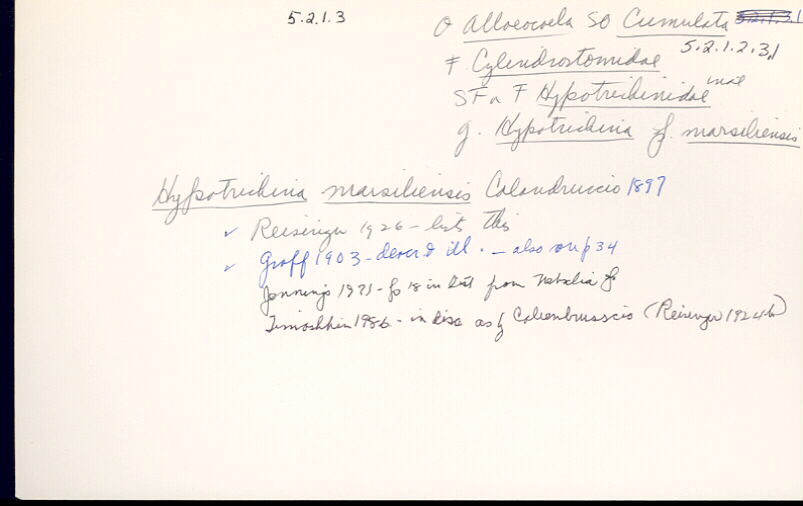 5.2.1.3
O Alloeocoela SO Cumulata 5.2.1.3.1
5.2.1.2.3.1
F Cylindrostomidae
SF or F Hypotrichinidae inae
g. Hypotrichina f. marsiliensis
Hypotrichina marsiliensis Calandruccio 1897
✓ Reisinger 1926 - lists this
✓ Graff 1903 - descr & ill. - also on p 34
Jennings 1971 - p 18 in list from Nebalia
Timoshkin 1986 - in disc as of (Reisinger 1924b)